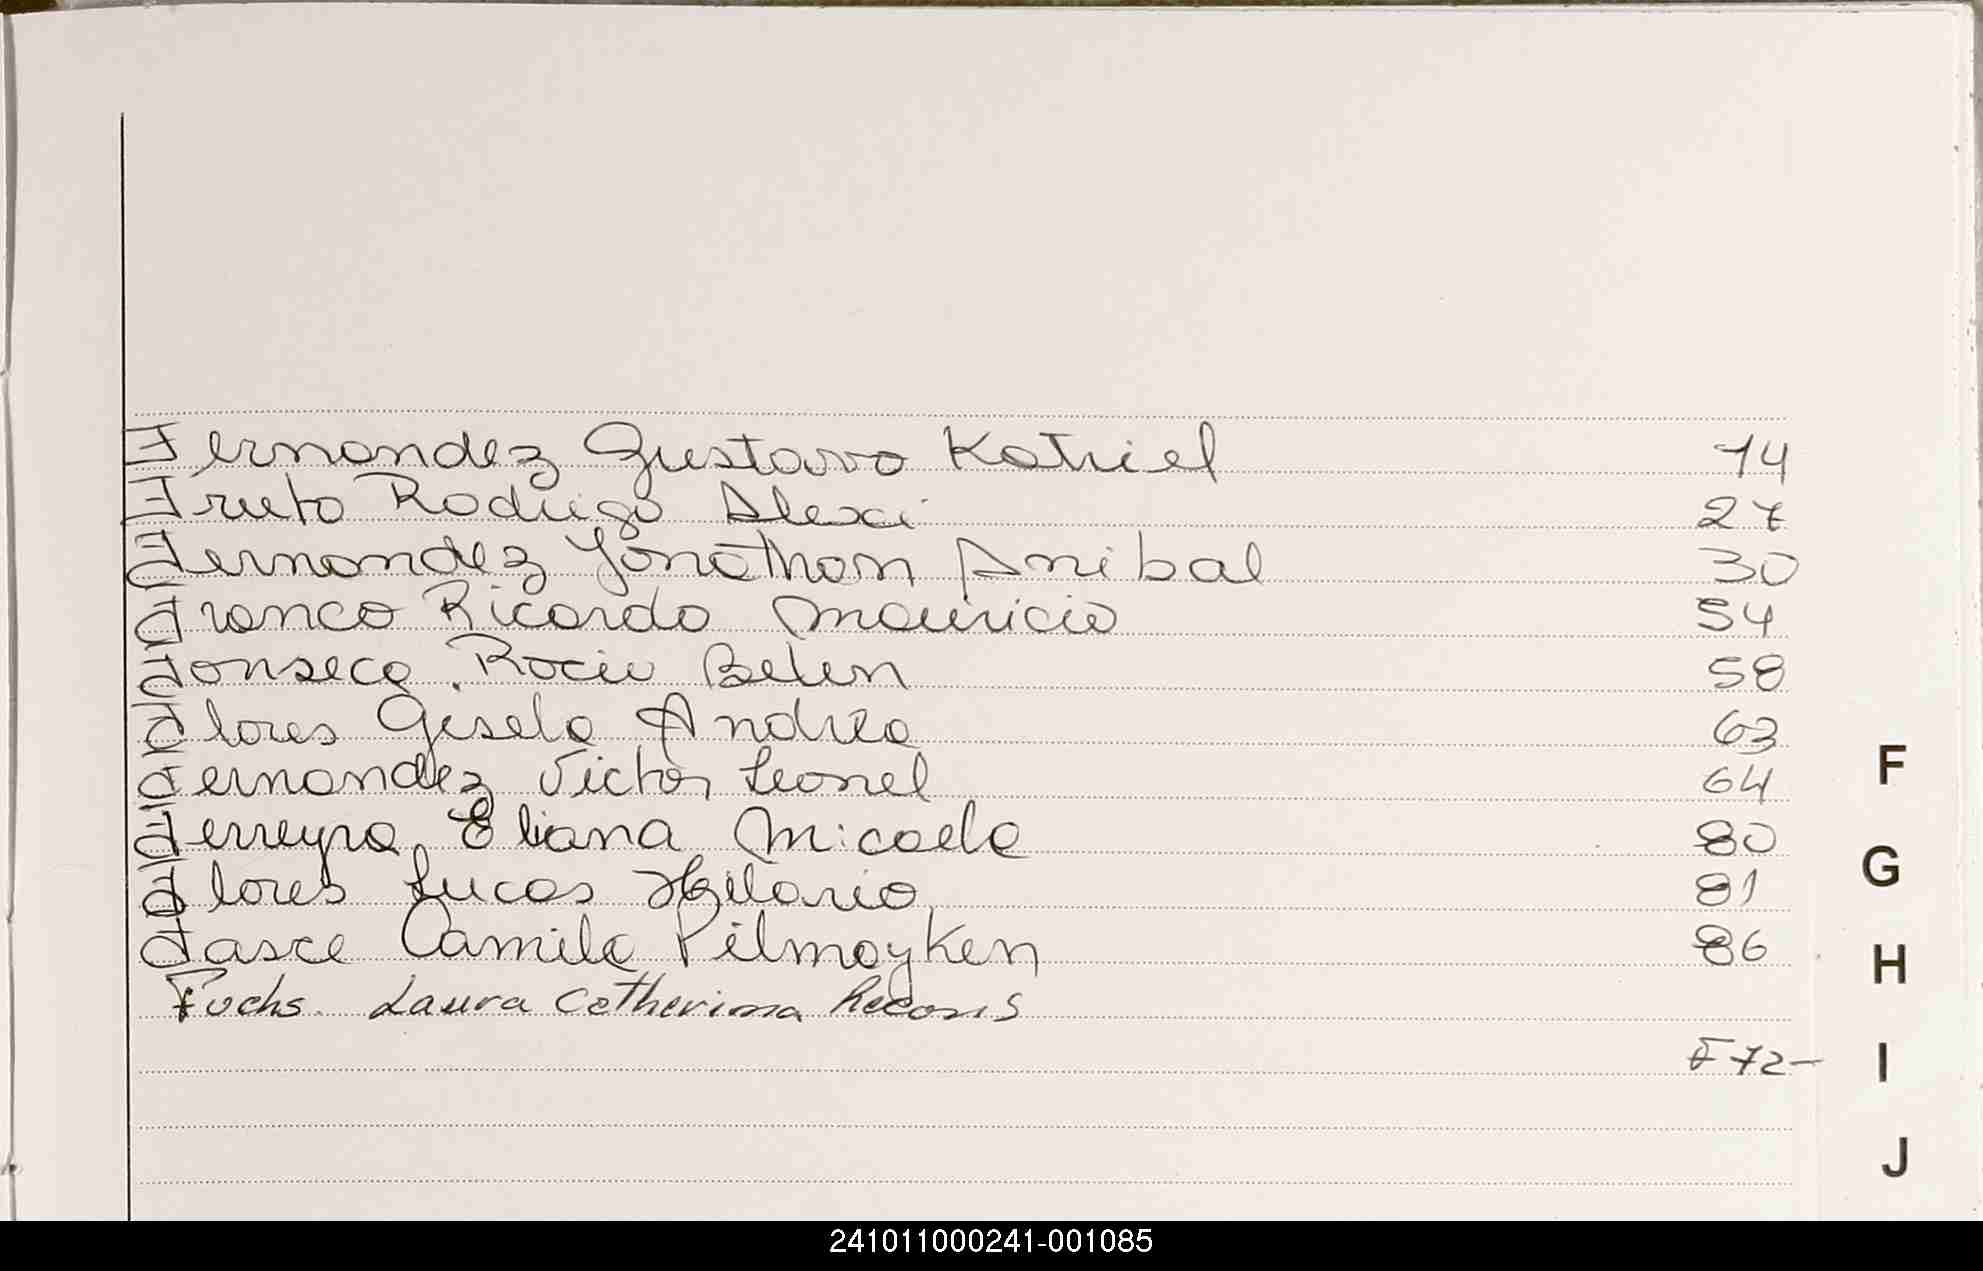 Fernandez Gustavo Katriel 14
Fruto Rodrigo Alexi 27
Fernandez Jonathan Anibal 30
Franco Ricardo Mauricio 54
Fonseca Rocio Belen 58
Flores Gisela Andrea 63
Fernandez Victor Leonel 64
Ferreyra Eliana Micaela 80
Flores Lucas Hilario 81
Fasce Camila Pilmayken 86
Fuchs. Laura Catherina
F 72-
F
G
H
I
J
241011000241-001085